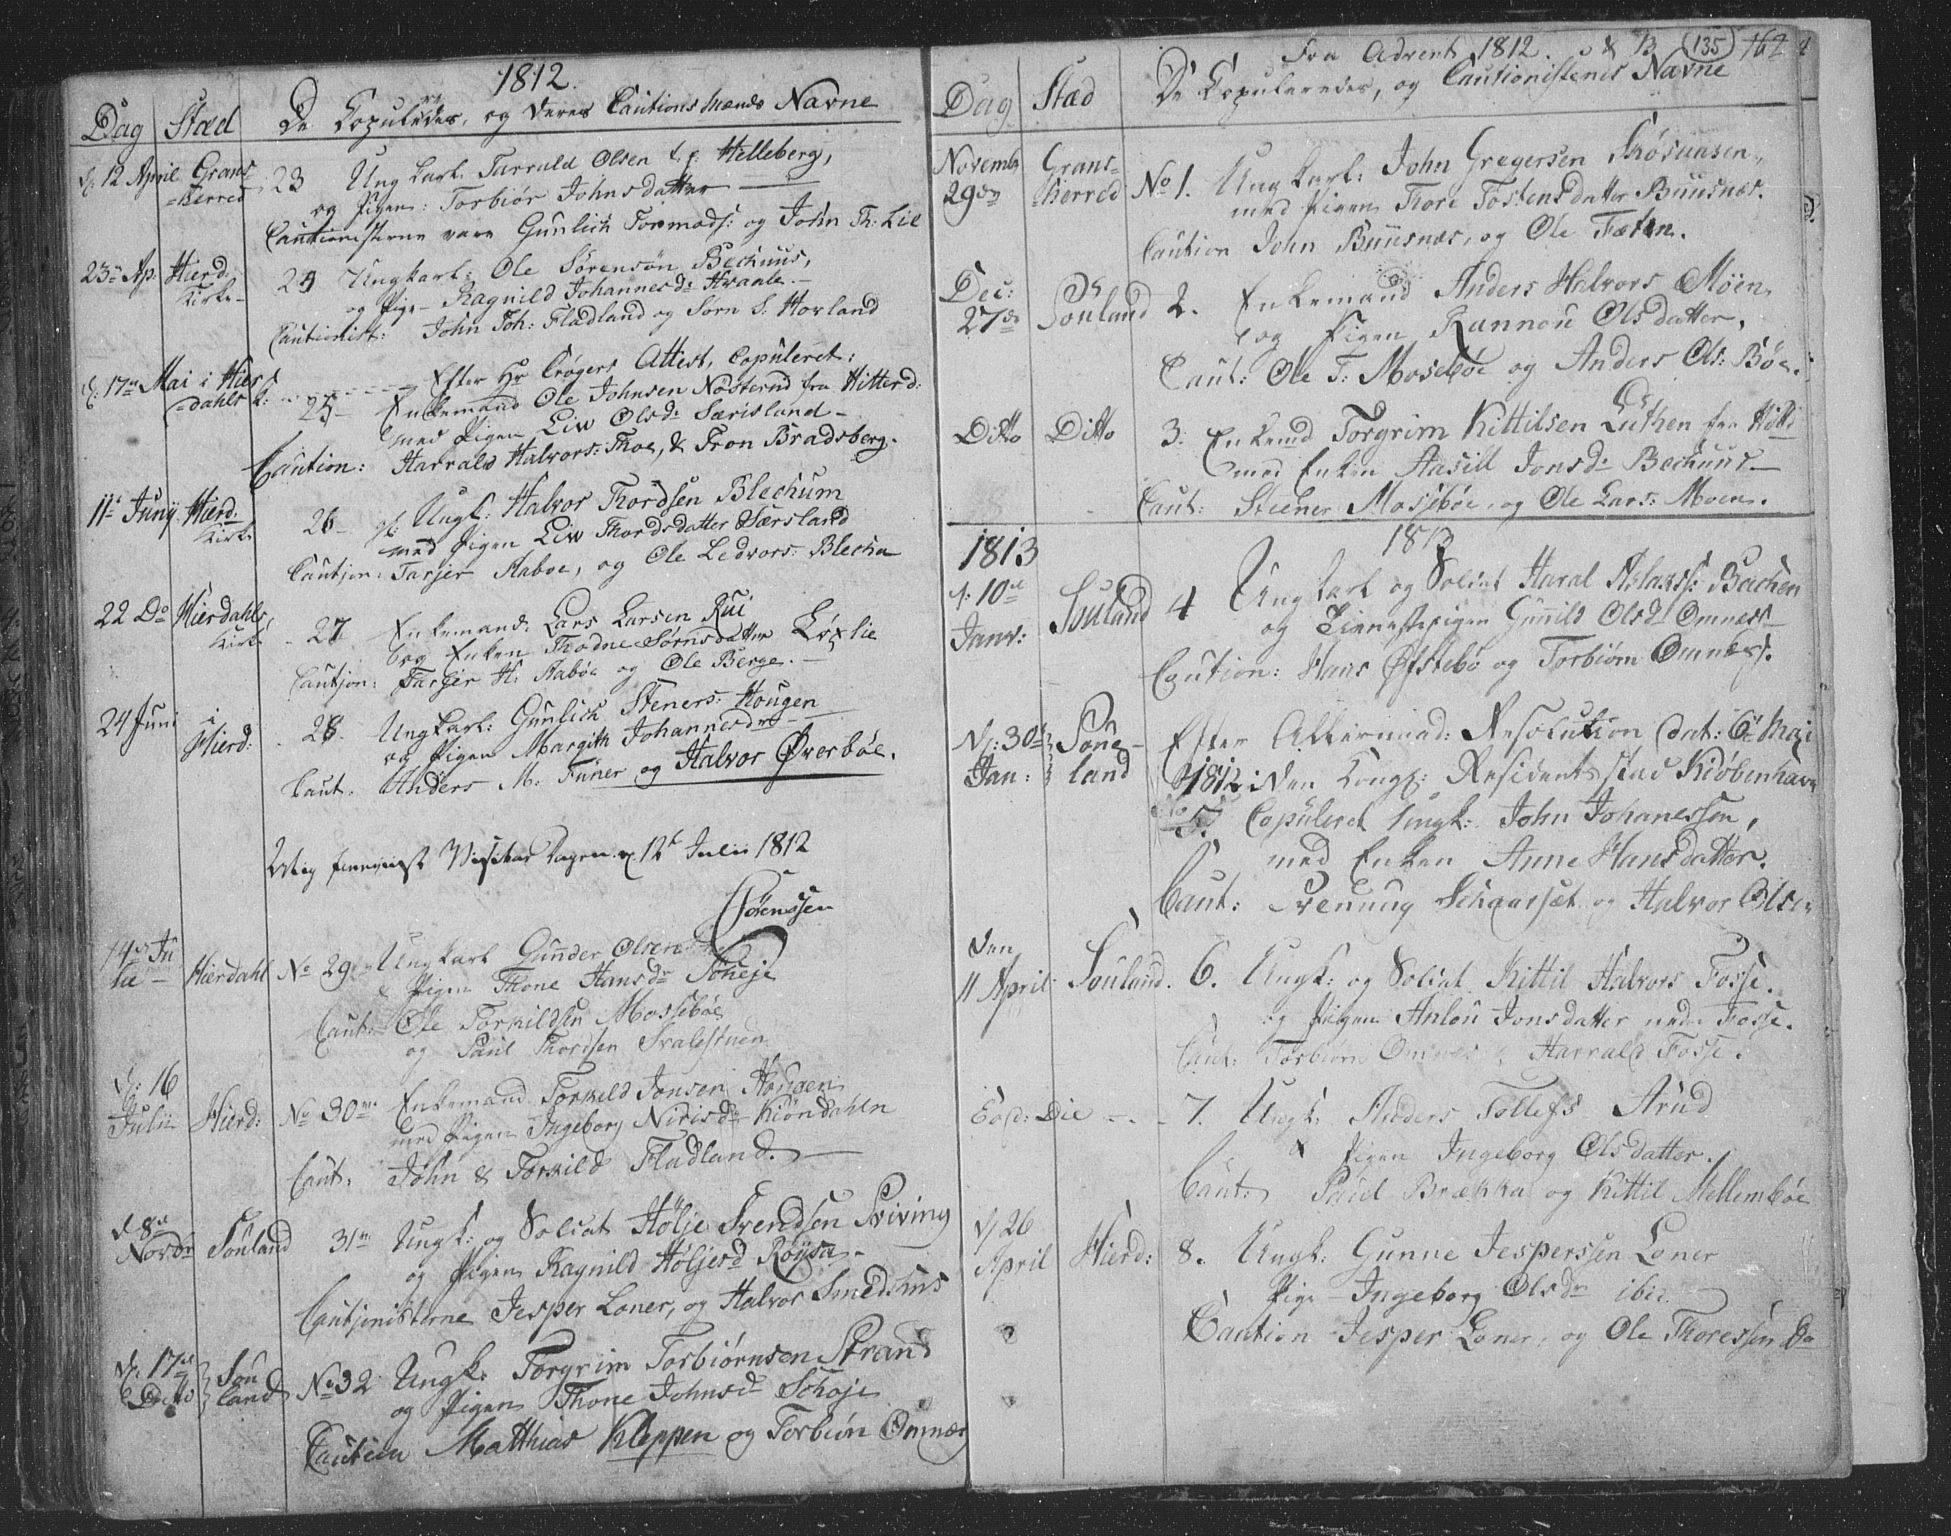 1812.
Dag Stæd De Copulerede, og deres Cautions Mænds Navne
d: 12 April Grans- 23 Ung Karl Tarrald Olsen Helleberg,
=herred og Pigen: Torbiør Johnsdatter
Cautionisterne vare Gunlich Tormods: og John Th: Lie
23de Ap. Hierd: 24 Ungkarl: Ole Sørensøn Bechuus,
Kirke- og Pige- Ragnild Johannesd: Hvaale.-
Cautionist: John Joh: Fladland og Sørn S. Horland
d: 17de Mai i Hier- Efter Hr Crøgers Attest, Copuleret:
=dahls k: 25- Enkemand Ole Johnsen Nosternd fra Hitterd:
med Pigen Liw Olsdr Særisland-
Caution: Harrald Halvors: Thoe, & Tron Bradsberg.
11te Juny Hierd: 26- Ungk: Halvor Thordsen Blechum
Kirke med Pigen Liw Thordsdatter Særsland
Cautjon: Tarjer Aaboe, og Ole Ledvors: Blecha
22 Do Hierdahls, 27 Enkemand: Lars Larsen Rui
Kirke og Enken Thodne Sørnsdatter Løxlie
Cautjon: Tarjer H: Aaboe og Ole Berge.-
24 Juni i 28. Ungkarl: Gunlich Steners: Hougen
Hierd: og Pigen Margith Johannesdr
Caut: Anders M. Funer og Halvor Øverbøe.
Visitas Dagen d. 12te Julii 1812
Sørenssen
14de Ju Ungkarl Gunder Olsen
lie- Hierdahl No 29 & Pigen Thone Hansdr Søheje
Caut: Ole Torkildsen Mossebøe
og Paul Thordsen Svalestuen
d: 16 Enkemand Torkild Jonsen Hougen
Julii Hierd: No 30 med Pigen Ingeborg Nirisdr Kiøndahln
Caut: John & Torkild Fladland.
d. 8de 31 Ungk: og Soldat Hølje Svendsen Qviving
Novbr Souland og Pigen Ragnild Høljesd Røysa.
Cautjonisterne Jesper Loner, og Halvor Smedshus
d: 17de Sou No 32 Ungk: Torgrim Torbiørnsen Strand
Ditto land og Pigen Thone Johnsdr Schøje
Caution Matthias Kleppen og Torbiøn Omnæs
Fra Advent 1812. & 13 135 162
Dag Stæd De Copulerede, og Cautionistenes Navne
Novemb Grans- No 1. Ungkarl: John Gregersen
29de =herred med Pigen Thore Tostensdatter Buusnæs.
Caution John Buusnæs, og Ole Fæten.
Dec: Souland 2. Enkemand Anders Halvors Möen
27de og Pigen Rannou Olsdatter,
Caut: Ole T: Mosebøe og Anders Ols: Bøe.
Ditto Ditto 3: Enkemd Torgrim Kittilsen Lutken fra Hitd
med Enken Aasill Jonsdr Bechuus-
Caut: Stiener Mossebøe, og Ole Lars: Moen.
1813 1813
d: 10de Souland 4 Ungkarl og Soldat Haral Aslakss: Bachen
Janv: og Tienestepigen Gunild Olsd Omnæs
Caution: Hans Øfstebø og Torbiørn Omnæs.
d: 30te Sou- Efter Allernaad: Resolution dat: 6te Mai
Jan: land 1812 i den Kongl: Residentz stad Kiøbenhavn
No 5. Copuleret Ungk: John Johanessen,
med Enken Anne Hansdatter.
Caut: Svenung Schaarsæt og Halvor Olsen
den
11 April Souland. 6. Ungk: og Soldat Kittil Halvors Fosse.
og Pigen Anlou Jonsdatter nedr Fosse.
Caut: Torbiørn Omnæs & Harrald Fosse.
Eosd: Die - - - 7. Ungk: Anders Tollefs Arud
& Pigen Ingeborg Olsdatter.
Caut: Paul Brækka og Kittil Mellembøe
d/26 8. Ungk: Gunne Jesperssen Loner
April Hierd: Pige Ingeborg Olsdr ibid.
Caution Jesper Loner, og Ole Thoressen Do